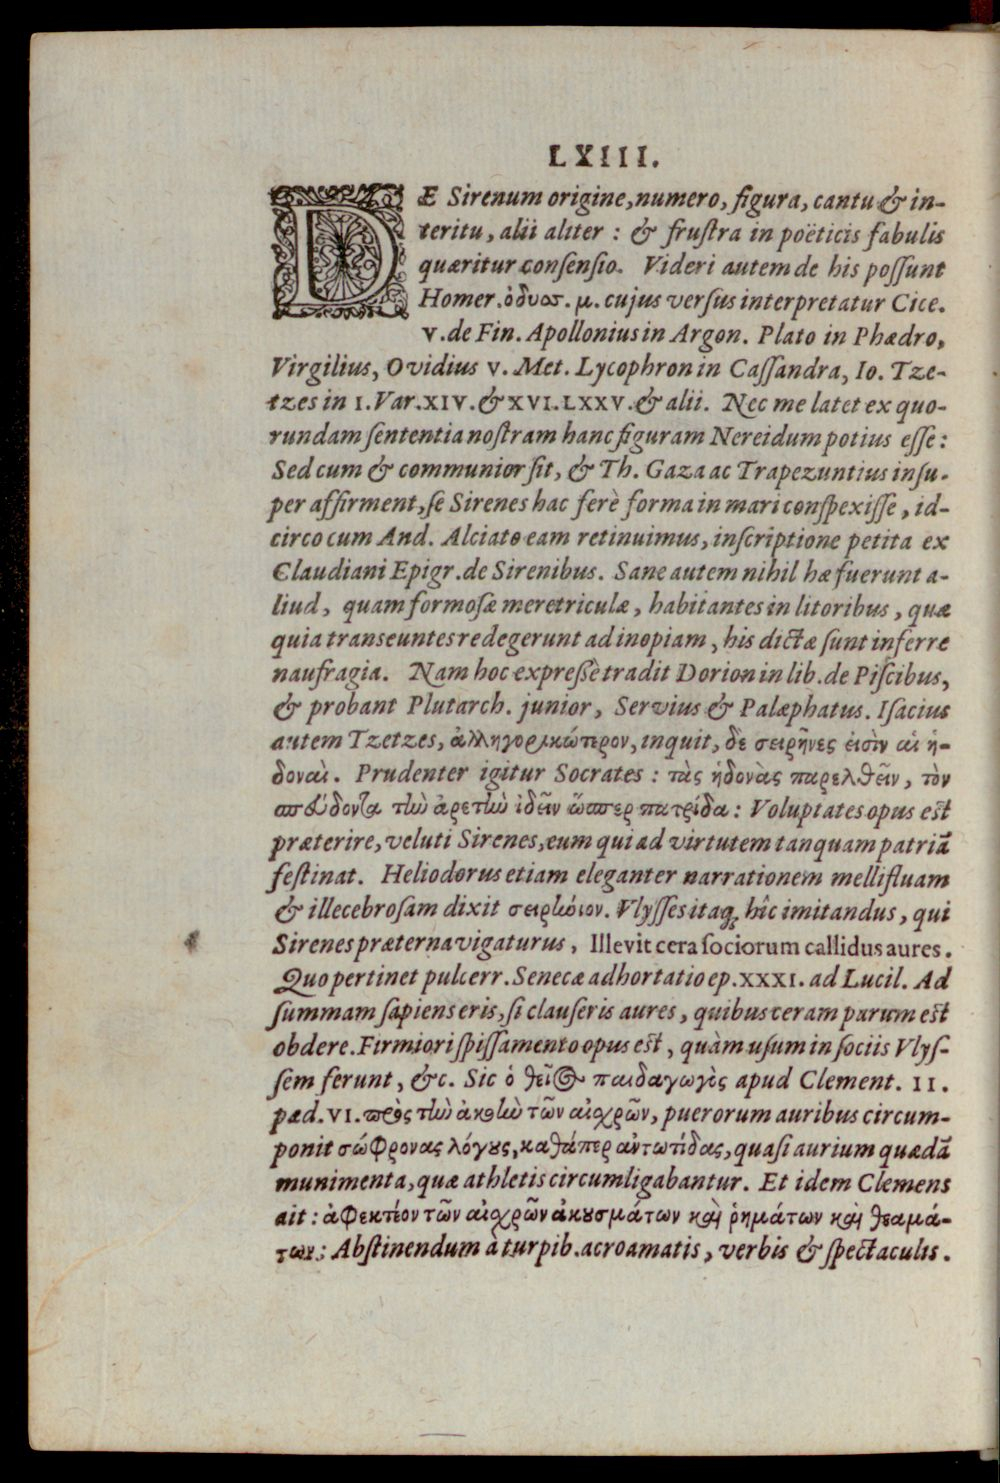 LXIII.
DE Sirenum origine, numero, figura, cantu & in-
teritu, alii aliter : & fruſtra in poëticis fabulis
quæritur conſenſio. Videri autem de his poſſunt
Homer. ὀδυσ. μ. cujus verſus interpretatur Cice.
V. de Fin. Apollonius in Argon. Plato in Phædro,
Virgilius, Ovidius V. Met. Lycophron in Caſſandra, Io. Tze-
tzes in I. Var. XIV. & XVI. LXXV. & alii. Nec me latet ex quo-
rundam ſententia noſtram hanc figuram Nereidum potius eſſe:
Sed cum & communior ſit, & Th. Gaza ac Trapezuntius inſu-
per affirment, ſe Sirenes hac ferè forma in mari conſpexiſſe, id-
circo cum And. Alciato eam retinuimus, inſcriptione petita ex
Claudiani Epigr. de Sirenibus. Sane autem nihil hæ fuerunt a-
liud, quam formoſæ meretriculæ, habitantes in litoribus, quæ
quia transeuntes redegerunt ad inopiam, his dictæ ſunt inferre
naufragia. Nam hoc expreßè tradit Dorion in lib. de Piſcibus,
& probant Plutarch. junior, Servius & Palæphatus. Iſacius
autem Tzetzes, ἀλληγορικώτερον, inquit, δὲ σειρῆνες εἰσὶν αἱ ἡ-
δοναὶ. Prudenter igitur Socrates : τὰς ἡδονὰς παρελθεῖν, τὸν
σπεύδοντα τὴν ἀρετὴν ἰδεῖν ὥσπερ πατρίδα : Voluptates opus eſt
præterire, veluti Sirenes, eum qui ad virtutem tanquam patriã
feſtinat. Heliodorus etiam eleganter narrationem mellifluam
& illecebroſam dixit σειρήνιον. Vlyſſes itaq; hîc imitandus, qui
Sirenes præternavigaturus, Illevit cera ſociorum callidus aures.
Quo pertinet pulcerr. Senecæ adhortatio ep. XXXI. ad Lucil. Ad
ſummam ſapiens eris, ſi clauſeris aures, quibus ceram parum eſt
obdere. Firmiori ſpiſſamento opus eſt, quàm uſum in ſociis Vlyſ-
ſem ferunt, &c. Sic ὁ θεῖος παιδαγωγὸς apud Clement. II.
pæd. VI. πρὸς τὴν ἀκοὴν τῶν αἰσχρῶν, puerorum auribus circum-
ponit σώφρονας λόγους, καθάπερ ἀντωτίδας, quaſi aurium quædã
munimenta, quæ athletis circumligabantur. Et idem Clemens
ait : ἀφεκτέον τῶν αἰσχρῶν ἀκουσμάτων καὶ ῥημάτων καὶ θεαμά-
των : Abſtinendum à turpib. acroamatis, verbis & ſpectaculis.